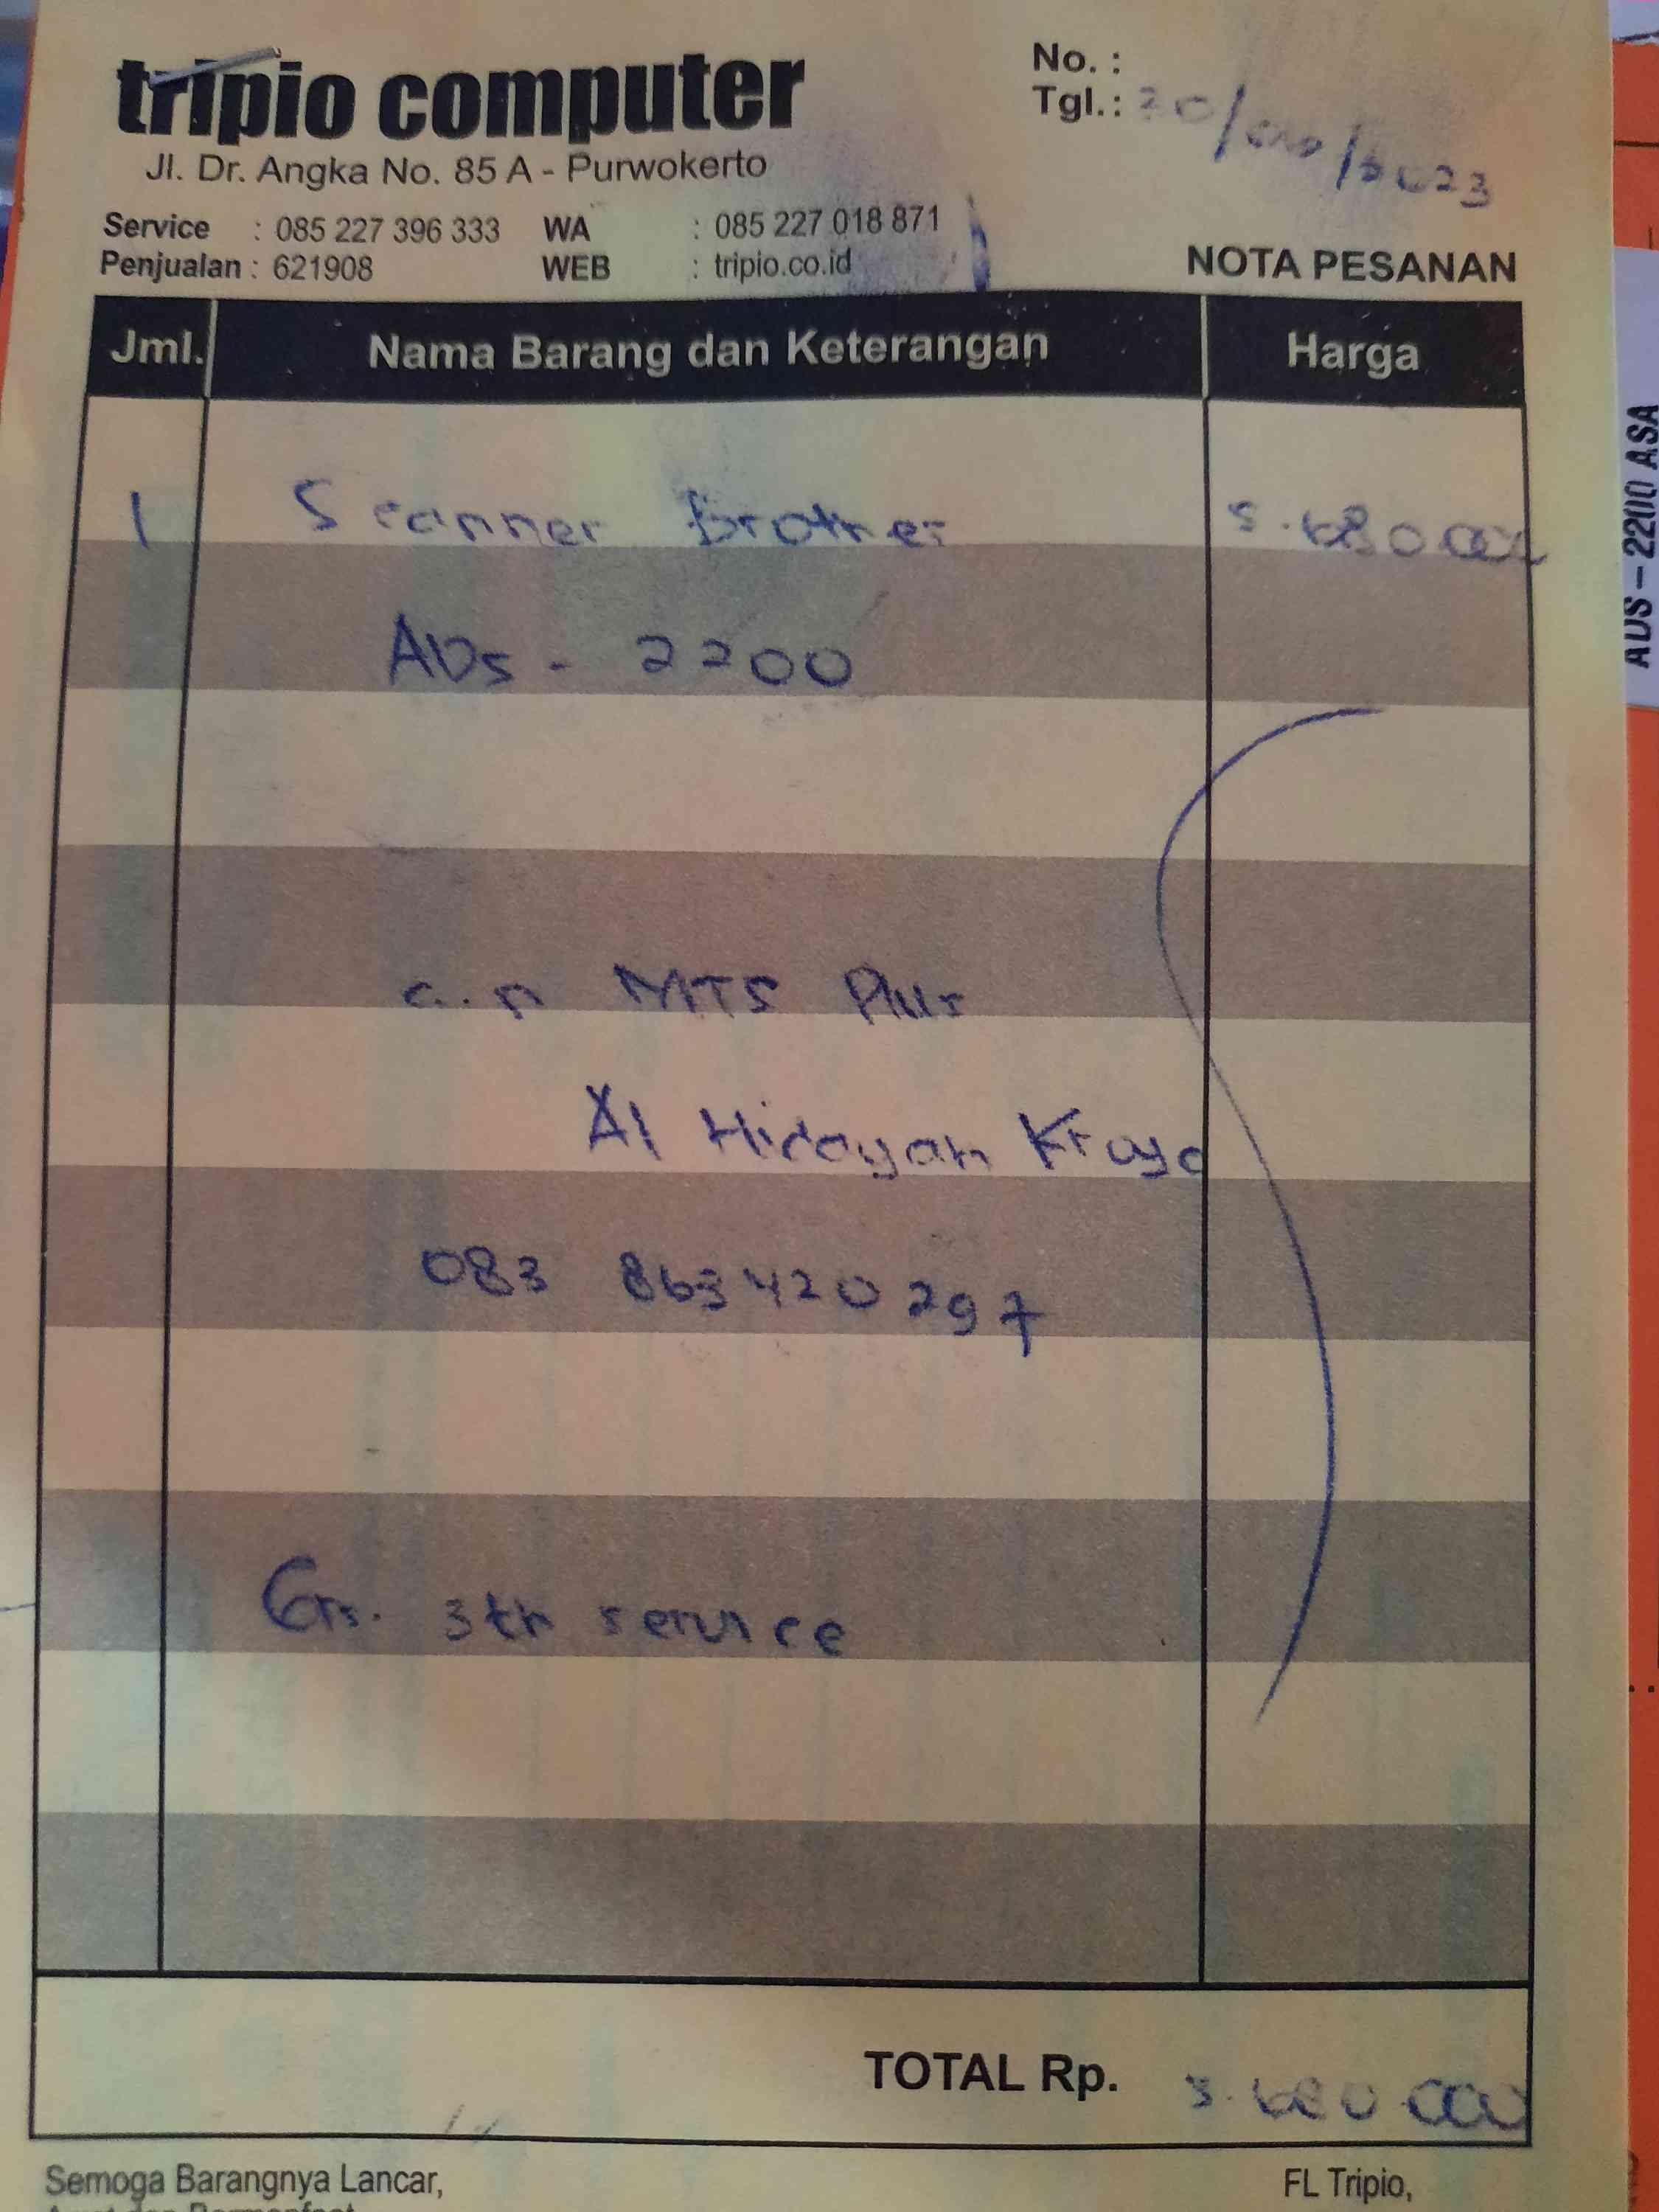 tripio computer
Jl. Dr. Angka No. 85 A - Purwokerto
Service : 085 227 396 333 WA : 085 227 018 871
Penjualan : 621908 WEB : tripio.co.id
No. :
Tgl. : 20/ /2023
NOTA PESANAN
Jml. Nama Barang dan Keterangan Harga
1 Scanner Brother 5.680.000
ADS - 2200
a.n MTS Plus
Al Hidayah Kroya
083 863420297
Grs. 3th service
TOTAL Rp. 5.680.000
Semoga Barangnya Lancar,
FL Tripio,
ADS-2200 ASA